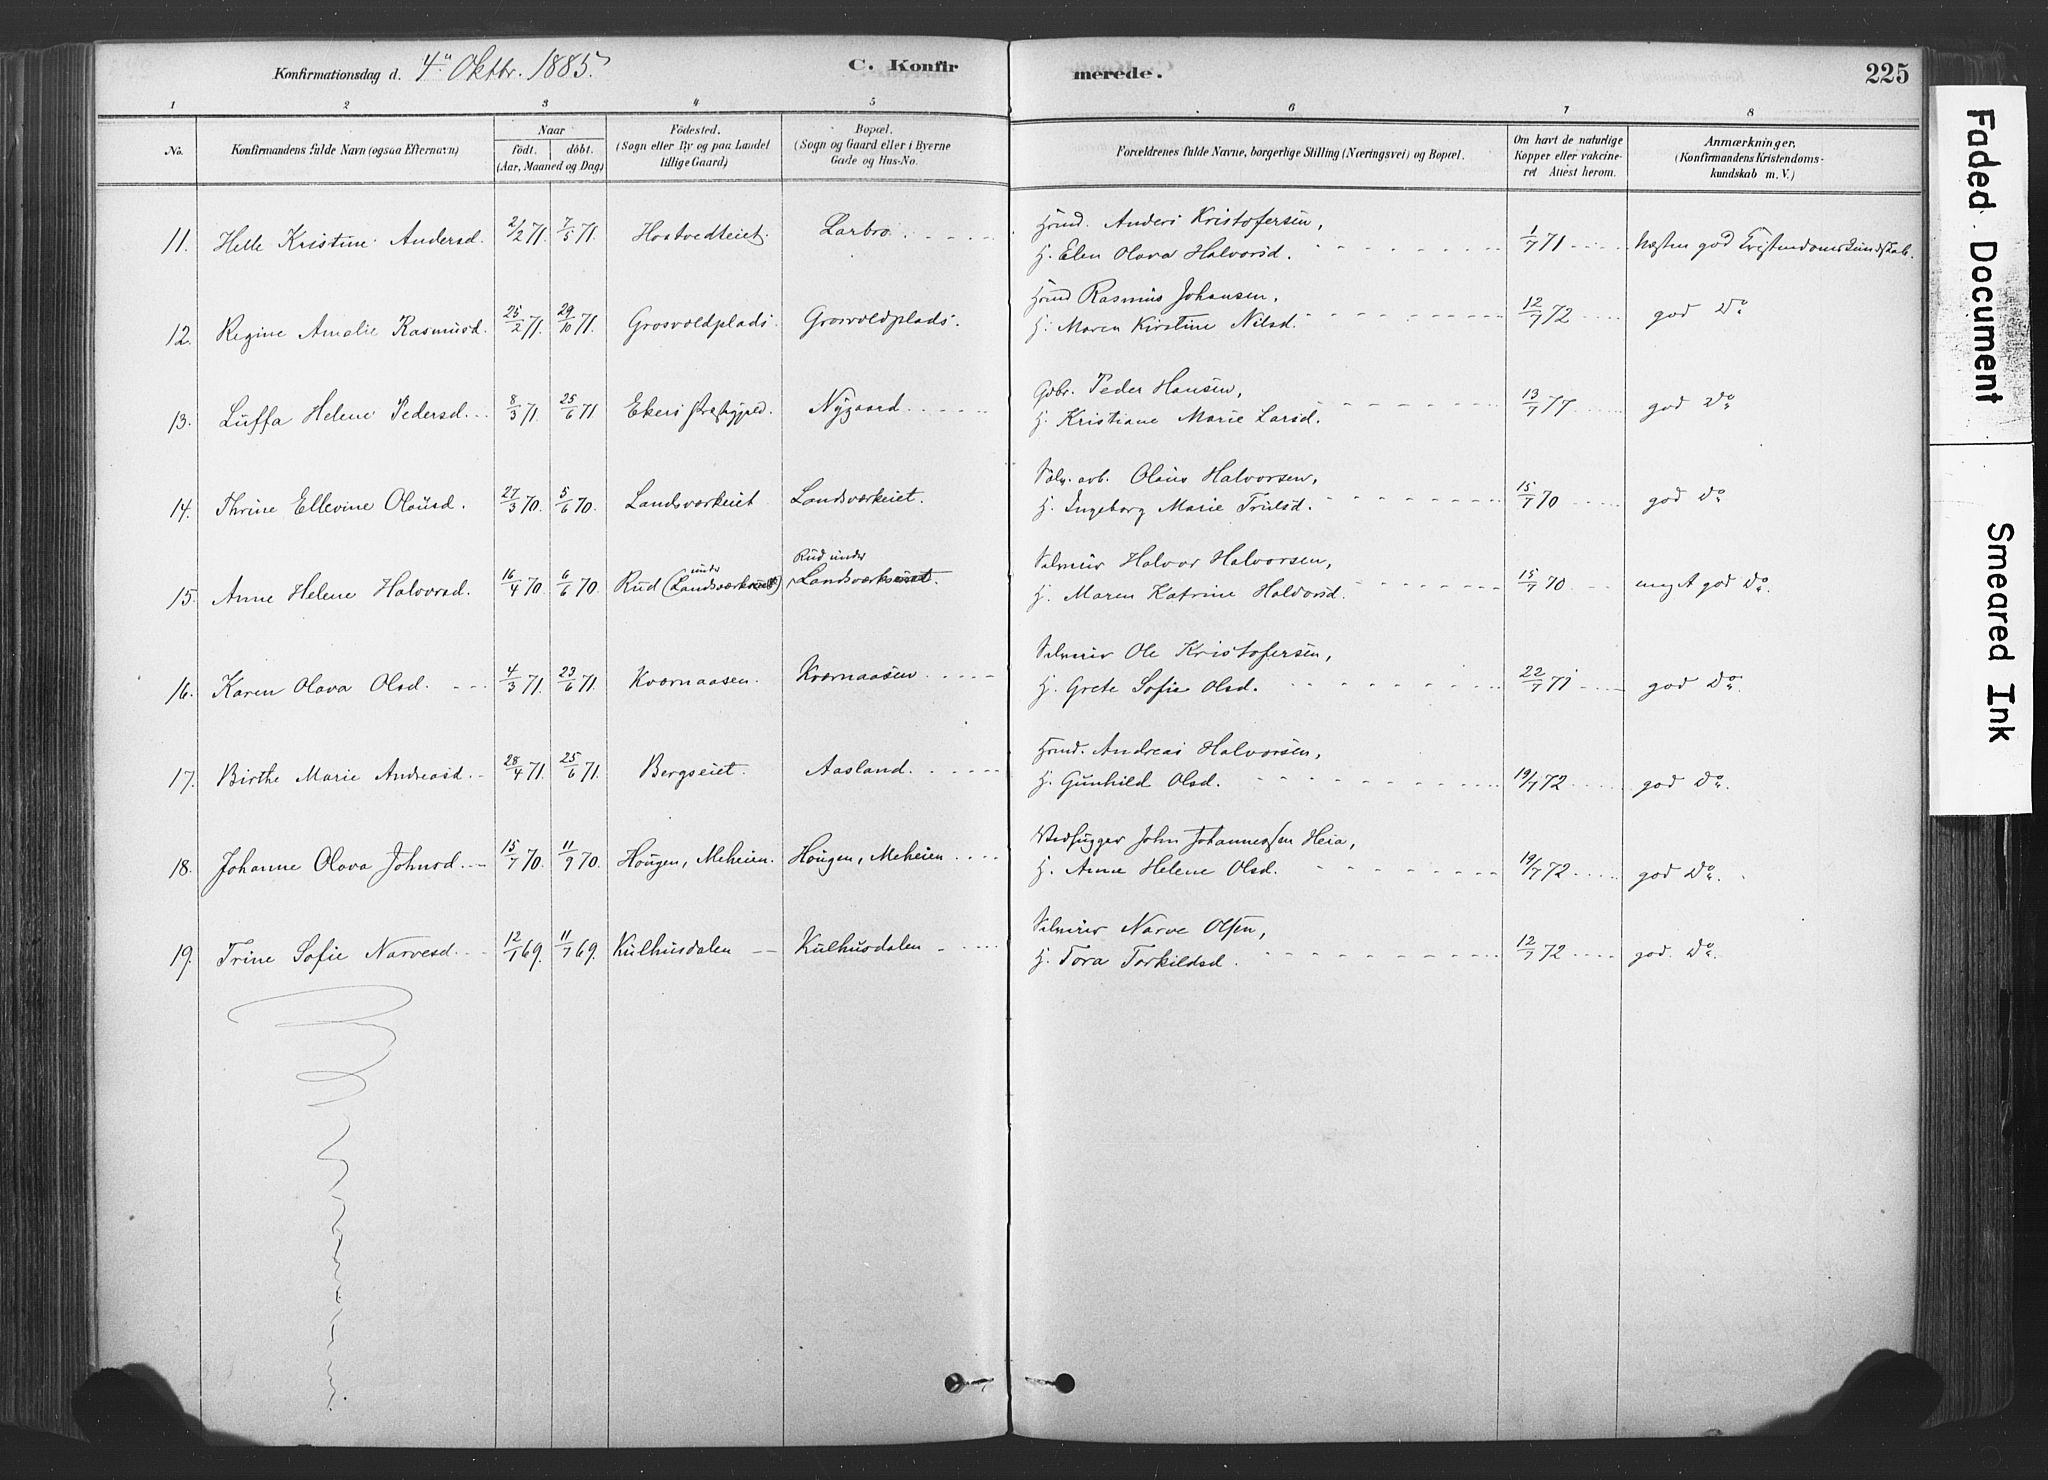 Konfirmationsdag d. 4de Oktbr. 1885.
C. Konfirmerede.
225
1 2 3 4 5 6 7 8
No.
Konfirmandens fulde Navn (ogsaa Efternavn)
Naar
födt. döbt.
(Aar, Maaned og Dag)
Födested.
(Sogn eller By og paa Landet
tillige Gaard)
Bopæl.
(Sogn og Gaard eller i Byerne
Gade og Hus-No.
Forældrenes fulde Navne, borgerlige Stilling (Næringsvei) og Bopæl.
Om havt de naturlige
Kopper eller vakcine-
ret Attest herom.
Anmærkninger.
(Konfirmandens Kristendoms-
kundskab m. V.)
11. Helle Kristine Andersd. 2/2 71. 7/5 71. Hostvedteiet. Larbro. Hmd. Anders Kristofersen, 1/7 71 Næsten god Kristendomskundskab.
H. Elen Olava Halvorsd.
12. Regine Amalie Rasmusd. 25/2 71. 29/10 71. Grosvoldplads. Grosvoldplads. Hmd Rasmus Johansen, 12/7 72 god Do
H. Maren Kirstine Nilsd.
13. Luffa Helene Pedersd. 8/3 71. 25/6 71 Ekers Præstegjeld. Nygaard Gdbr. Peder Hansen, 13/7 77 god Do
H. Kristiane Marie Larsd.
14. Thrine Ellevine Olausd. 27/3 70. 5/6 70. Landsværkeiet Landsværkeiet. arb. Olaus Halvorsen, 15/7 70 god Do
H. Ingeborg Marie Trulsd.
15. Anne Helene Halvorsd. 16/4 70. 6/6 70. Rud (under Landsværkeiet) Rud under Landsværkeiet. Selveier Halvor Halvorsen, 15/7 70 meget god Do.
H. Maren Katrine Haldorsd.
16. Karen Olava Olsd. 4/3 71. 23/6 71. Kværnaasen. Kværnaasen Selveier Ole Kristofersen, 22/7 71 god Do.
H. Grete Sofie Olsd.
17. Birthe Marie Andreasd. 28/4 71. 25/6 71. Bergseiet. Aasland. Hmd. Andreas Halvorsen, 19/7 72 god Do.
H. Gunhild Olsd.
18. Johanne Olava Johnsd. 15/7 70. 11/9 70. Hougen, Meheien. Hougen, Meheien Vedhugger John Johannessen Heia, 19/7 72 god Do.
H. Anne Helene Olsd.
19. Trine Sofie Narvesd. 12/1 69. 11/7 69. Kulhusdalen Kulhusdalen Selveier Narve Olsen, 12/7 72 god. Do.
H. Tora Torkildsd.
Faded Document
Smeared Ink